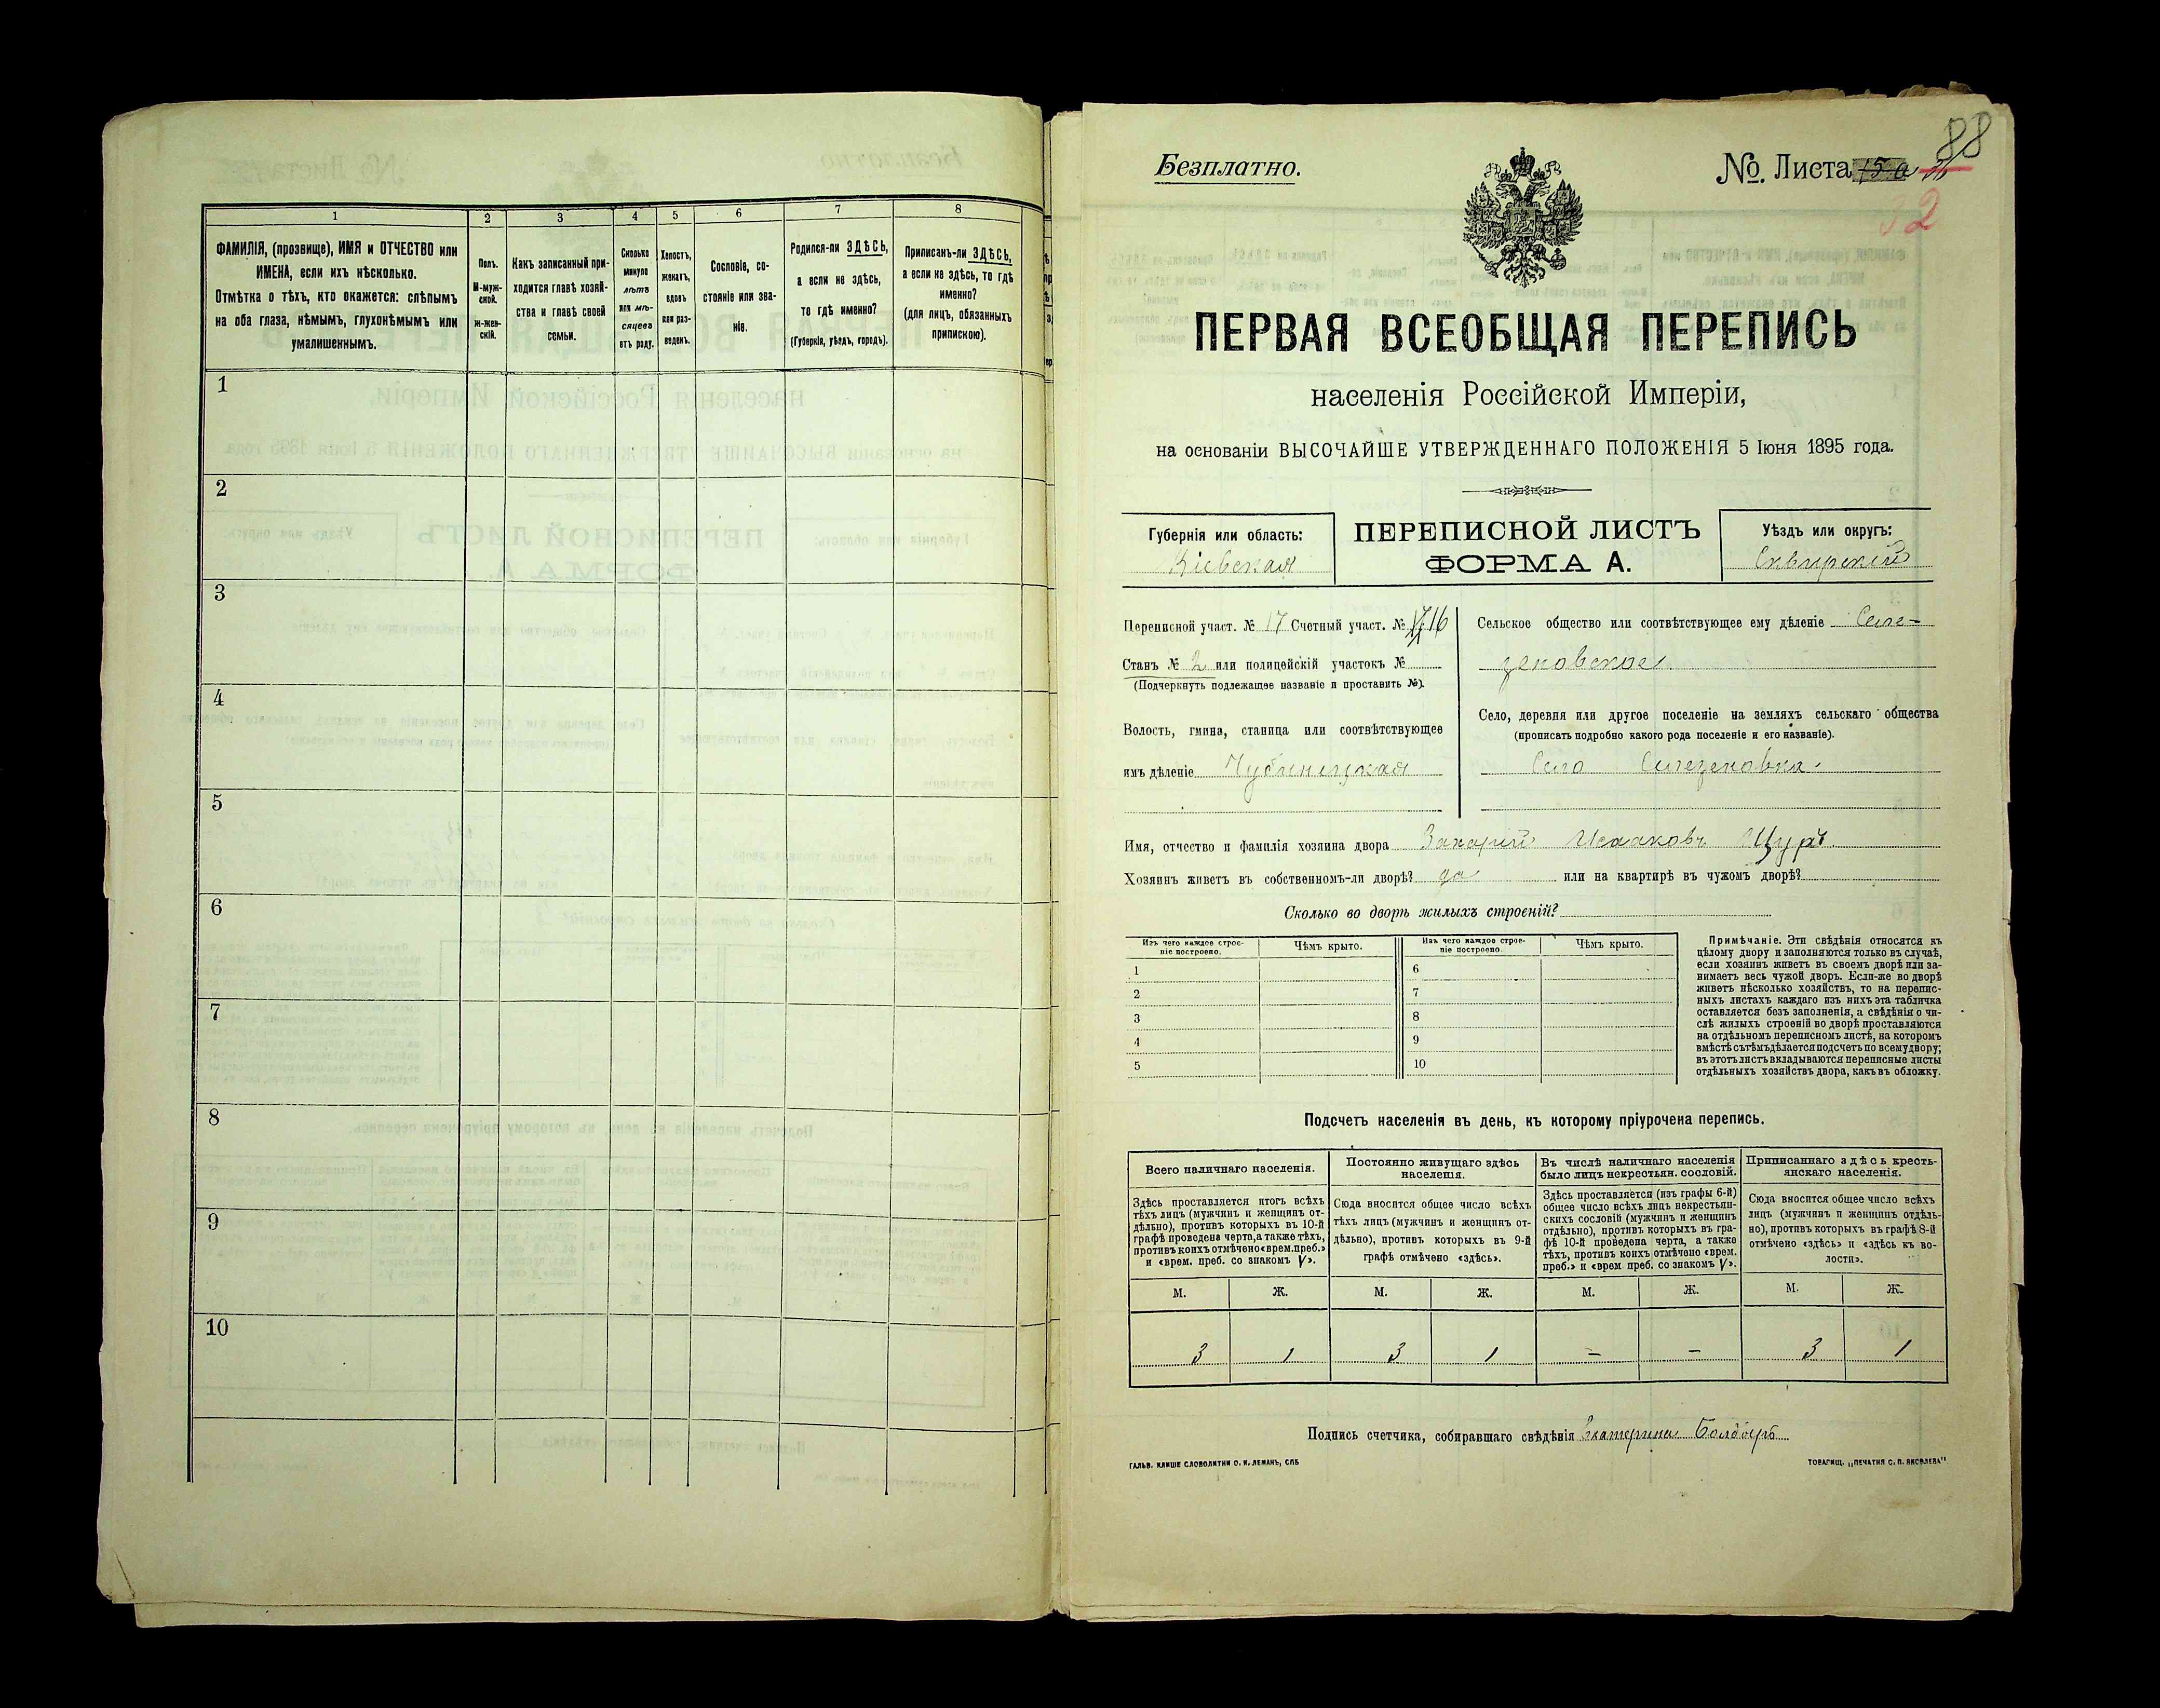 1
2
3
4
5
6
7
8
ФАМИЛІЯ, (прозвище), ИМЯ и ОТЧЕСТВО или
ИМЕНА, если ихъ нѣсколько.
Отмѣтка о тѣхъ, кто окажется: слѣпымъ
на оба глаза, нѣмымъ, глухонѣмымъ или
умалишеннымъ.
Полъ.
М-муж-
ской.
Ж-жен-
скій.
Какъ записанный при-
ходится главѣ хозяй-
ства и главѣ своей
семьи.
Сколько
минуло
лѣтъ
или мѣ-
сяцевъ
отъ роду.
Холостъ,
женатъ,
вдовъ
или раз-
веденъ.
Сословіе, со-
стояніе или зва-
ніе.
Родился-ли ЗДѢСЬ,
а если не здѣсь,
то гдѣ именно?
(Губернія, уѣздъ, городъ).
Приписанъ-ли ЗДѢСЬ,
а если не здѣсь, то гдѣ
именно?
(для лицъ, обязанныхъ
припискою).
1
2
3
4
5
6
7
8
9
10
Безплатно.
№ Листа
88
32
ПЕРВАЯ ВСЕОБЩАЯ ПЕРЕПИСЬ
населенія Россійской Имперіи,
на основаніи ВЫСОЧАЙШЕ УТВЕРЖДЕННАГО ПОЛОЖЕНІЯ 5 Іюня 1895 года.
Губернія или область:
Кіевская
ПЕРЕПИСНОЙ ЛИСТЪ
ФОРМА А.
Уѣздъ или округъ:
Сквирскій
Переписной участ. № 17 Счетный участ. № 16
Станъ № 2 или полицейскій участокъ №
(Подчеркнуть подлежащее названіе и проставить №).
Волость, гмина, станица или соотвѣтствующее
имъ дѣленіе Чубинецкая
Сельское общество или соотвѣтствующее ему дѣленіе Селе-
зеновское
Село, деревня или другое поселеніе на земляхъ сельскаго общества
(прописать подробно какого рода поселеніе и его названіе).
Село Селезеновка.
Имя, отчество и фамилія хозяина двора Захарій Исааковъ Щуръ
Хозяинъ живетъ въ собственномъ-ли дворѣ? да или на квартирѣ въ чужомъ дворѣ?
Сколько во дворѣ жилыхъ строеній?
Изъ чего каждое строе-
ніе построено.
Чѣмъ крыто.
Изъ чего каждое строе-
ніе построено.
Чѣмъ крыто.
1
2
3
4
5
6
7
8
9
10
Примѣчаніе. Эти свѣдѣнія относятся къ
цѣлому двору и заполняются только въ случаѣ,
если хозяинъ живетъ въ своемъ дворѣ или за-
нимаетъ весь чужой дворъ. Если-же во дворѣ
живетъ нѣсколько хозяйствъ, то на перепис-
ныхъ листахъ каждаго изъ нихъ эта табличка
оставляется безъ заполненія, а свѣдѣнія о чи-
слѣ жилыхъ строеній во дворѣ проставляются
на отдѣльномъ переписномъ листѣ, на которомъ
вмѣстѣ съ тѣмъ дѣлается подсчетъ по всему двору;
въ этотъ листъ вкладываются переписные листы
отдѣльныхъ хозяйствъ двора, какъ въ обложку.
Подсчетъ населенія въ день, къ которому пріурочена перепись.
Всего наличнаго населенія.
Здѣсь проставляется итогъ всѣхъ
тѣхъ лицъ (мужчинъ и женщинъ от-
дѣльно), противъ которыхъ въ 10-й
графѣ проведена черта, а также тѣхъ,
противъ коихъ отмѣчено «врем. преб.»
и «врем. преб. со знакомъ V».
Постоянно живущаго здѣсь
населенія.
Сюда вносится общее число всѣхъ
тѣхъ лицъ (мужчинъ и женщинъ от-
дѣльно), противъ которыхъ въ 9-й
графѣ отмѣчено «здѣсь».
Въ числѣ наличнаго населенія
было лицъ некрестьян. сословій.
Здѣсь проставляется (изъ графы 6-й)
общее число всѣхъ лицъ некрестьян-
скихъ сословій (мужчинъ и женщинъ
отдѣльно), противъ которыхъ въ гра-
фѣ 10-й проведена черта, а также
тѣхъ, противъ коихъ отмѣчено «врем.
преб.» и «врем преб. со знакомъ V».
Приписаннаго здѣсь кресть-
янскаго населенія.
Сюда вносится общее число всѣхъ
лицъ (мужчинъ и женщинъ отдѣль-
но), противъ которыхъ въ графѣ 8-й
отмѣчено «здѣсь» и «здѣсь къ во-
лости».
М. Ж. М. Ж. М. Ж. М. Ж.
3 1 3 1 – – 3 1
Подпись счетчика, собиравшаго свѣдѣнія Екатерина
ГАЛЬВ. КЛИШЕ СЛОВОЛИТНИ О. И. ЛЕМАНЪ, СПБ
ТОВАРИЩ. „ПЕЧАТНЯ С. П. ЯКОВЛЕВА"